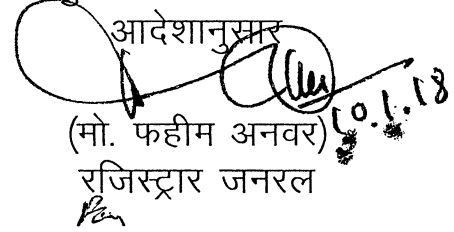 आदेशानुसार
10.1.18
(मो. फहीम अनवर)
रजिस्ट्रार जनरल